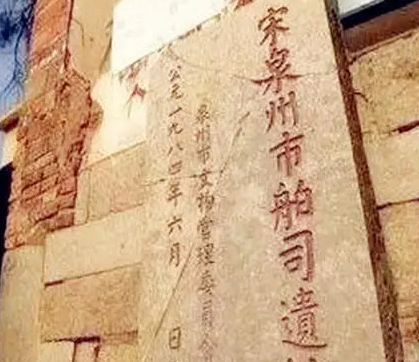 宋泉州市舶司遺
泉州市文物管理委員會
公元一九八四年六月 日